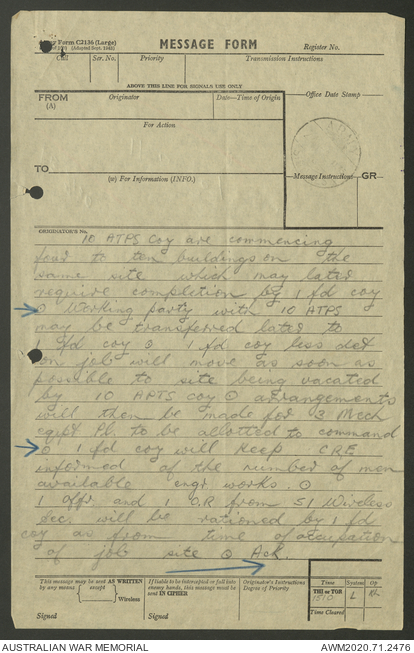 Army Form C2136 (Large)
MESSAGE FORM
Register No.
Call
Ser. No.
Priority
Transmission Instructions
ABOVE THIS LINE FOR SIGNALS USE ONLY
FROM
(A)
Originator
Date—Time of Origin
Office Date Stamp
For Action
TO
(w) For Information (INFO.)
Message Instructions
GR
ORIGINATOR'S No.
10 ATPS Coy are commencing
four to ten buildings on the
same site which may later
require completion by 1 fd coy
O Working party with 10 ATPS
may be transferred later to
1 fd coy 1 fd coy less det
on job will move as soon as
possible to site being vacated
by 10 APTS coy O arrangements
will then be made for 3 Mech
eqpt Pl to be allotted to command
O 1 fd coy will keep CRE
informed of the number of men
available engr works . O
1 offr and 1 O.R from 51 Wireless
Sec will be rationed by 1 fd
coy as from time of occupation
of job site O Ack.
This message may be sent AS WRITTEN
by any means (except) Wireless
Signed
If liable to be intercepted or fall into
enemy hands, this message must be
sent IN CIPHER
Signed
Originator's Instructions
Degree of Priority
Time
System
Op
THI or TOR
L
Time Cleared
AUSTRALIAN WAR MEMORIAL
AWM2020.71.2476